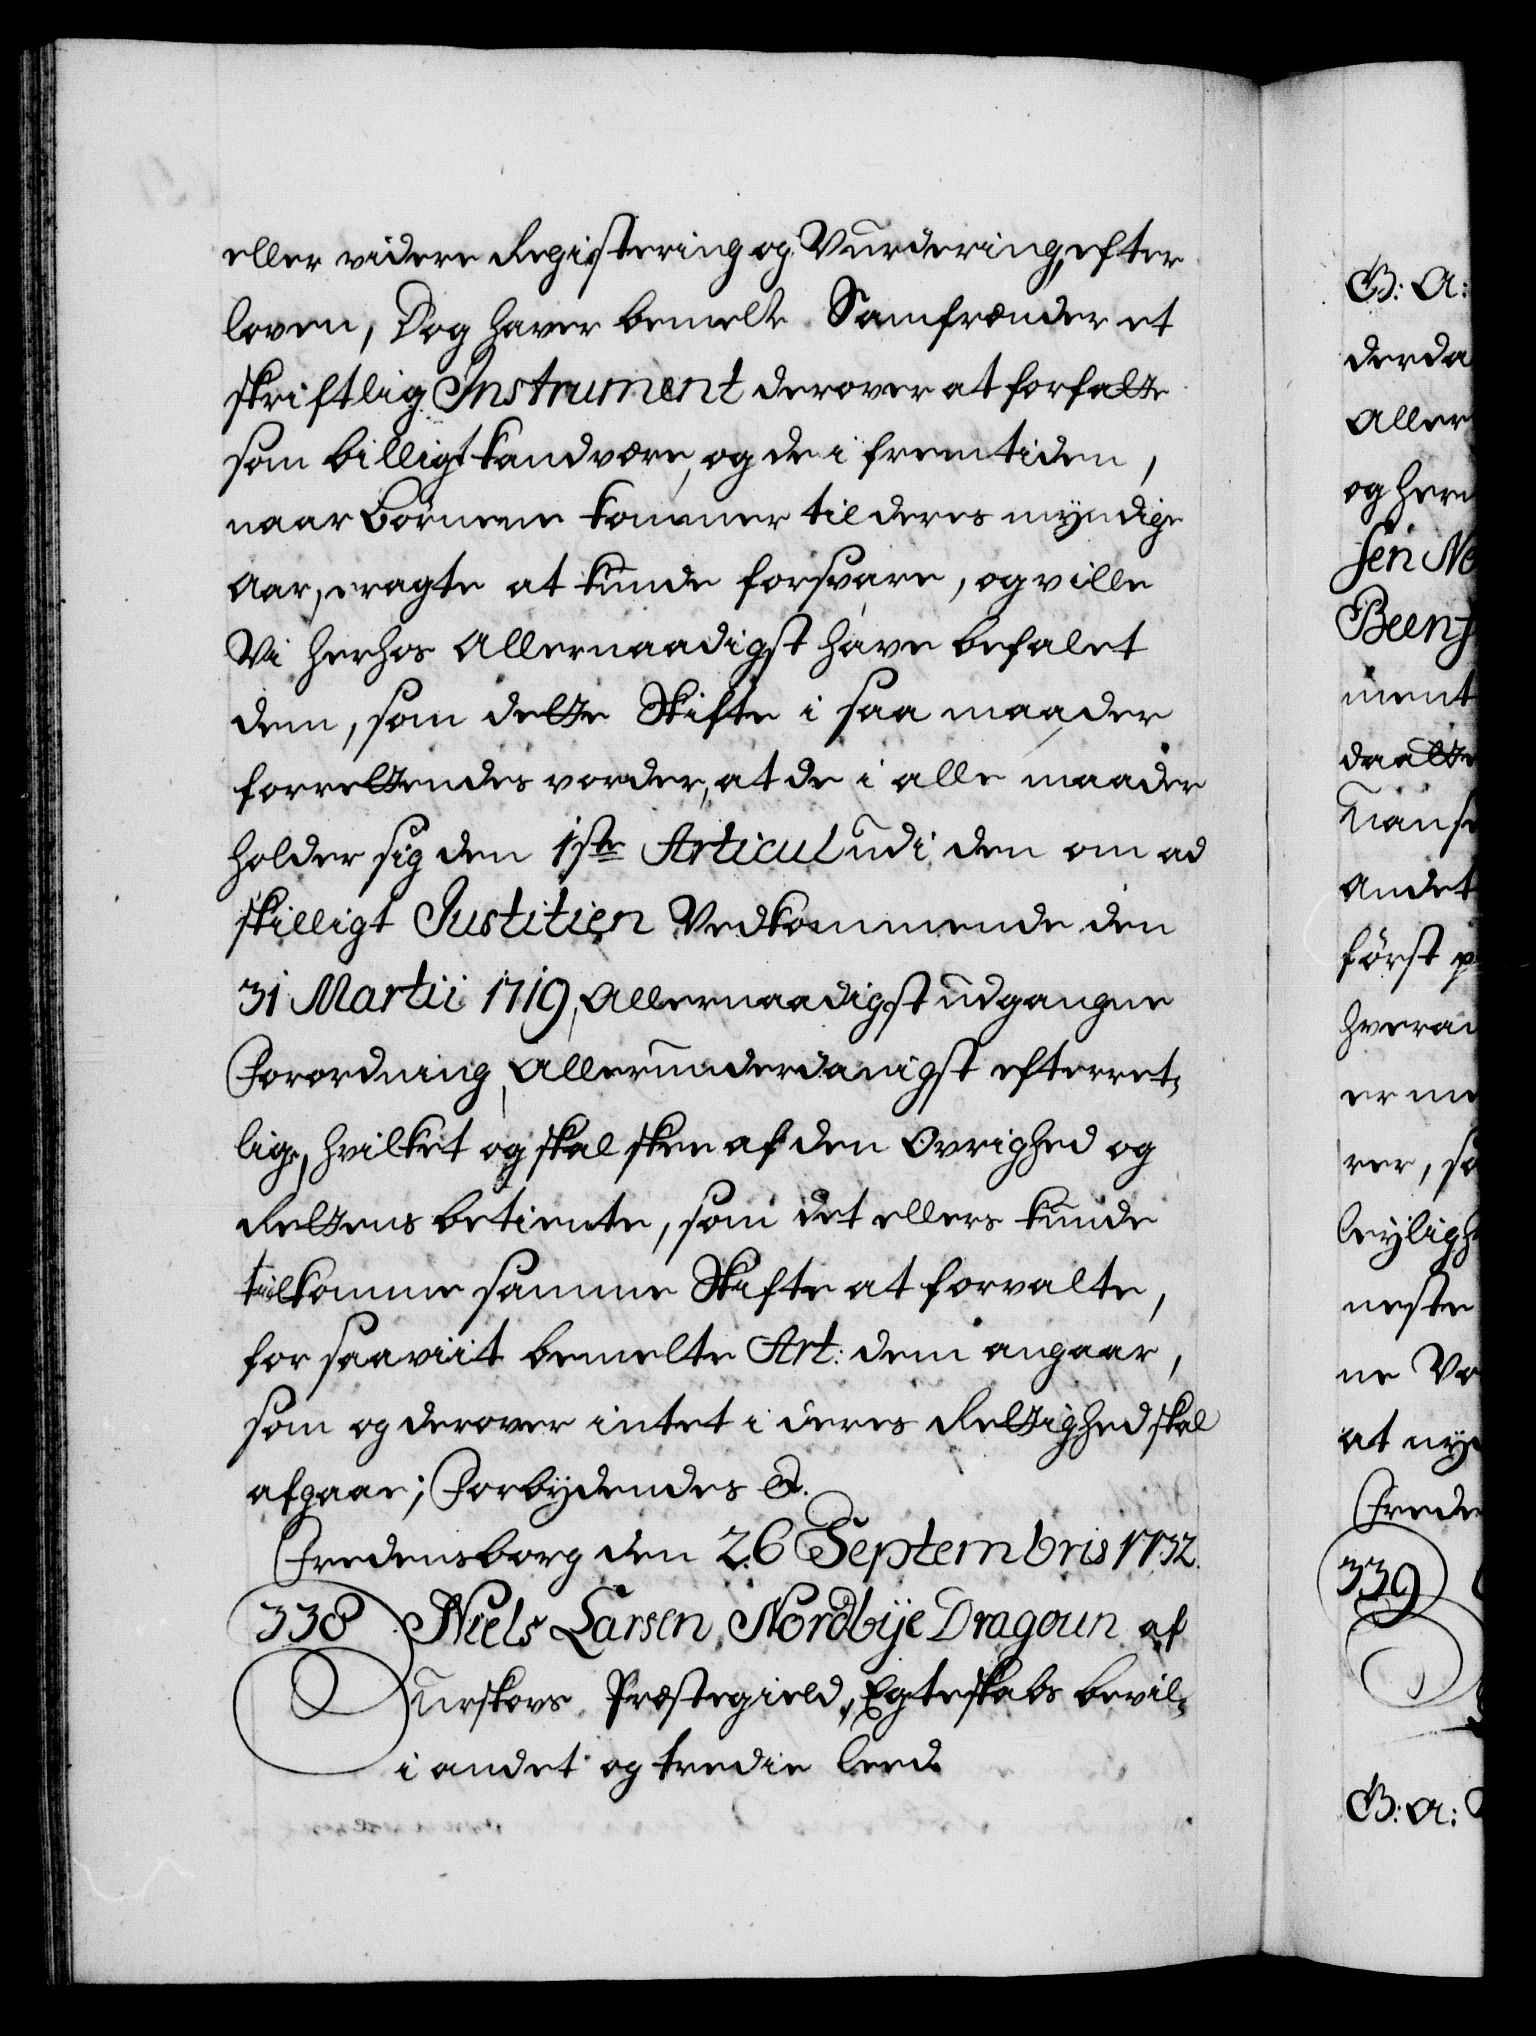 eller videre Registering og Vurdering, efter
loven, Dog haver bemelte Samfrænder et
skriftlig Instrument derover at forfatte
som billigt kand være, og de i fremtiden,
naar Börnene kommer til deres myndige
Aar, eragte at kunde forsvare, og ville
Vi herhos Allernaadigst have befalet
dem, som dette Skifte i saa maader
forrettendes vorder, at de i alle maader
holder sig den 1ste Articul udi den om ad
skilligt Justitien Vedkommende den
31 Martii 1719, Allernaadigst udgangne
Forordning, Allerunderdanigst efterret,
lige, hvilket og skal skee af den Øvrighed og
Rettens betiente, som det ellers kunde
tilkomme samme Skifte at forvalte,
for saaviit bemelte Art: dem angaar,
som og derover intet i deres Rettighed skal
afgaae; Forbydendes &.
Fredensborg den 26 Septembris 1732.
338 Niels Larsen Nordbije Dragoun af
Urskovs Præstegield, Egteskabs bevil,
i andet og tredie leed.
G: A:
derda
Aller
og her
sen Ne
Beenf
ment
daatte
andet
först p
hveran
er me
rer, sa
leylighe
neste
ne Vo
at nye
Frede
339
G: A: